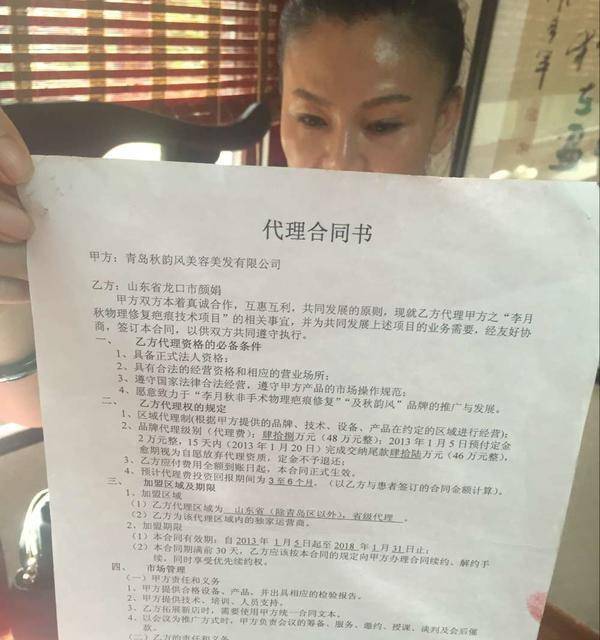 代理合同书
甲方：青岛秋韵风美容美发有限公司
乙方：山东省龙口市颜娟
甲方双方本着真诚合作，互惠互利，共同发展的原则，现就乙方代理甲方之“李月
秋物理修复疤痕技术项目”的相关事宜，并为共同发展上述项目的业务需要，经友好协
商，签订本合同，以供双方共同遵守执行。
一、 乙方代理资格的必备条件
1、具备正式法人资格；
2、具有合法的经营资格和相应的营业场所；
3、遵守国家法律合法经营，遵守甲方产品的市场操作规范；
4、愿意致力于“李月秋非手术物理疤痕修复”“及秋韵风”品牌的推广与发展。
二、 乙方代理权的规定
1、区域代理制(根据甲方提供的品牌、技术、设备、产品在约定的区域进行经营)；
2、品牌代理级别（代理费）：肆拾捌万元（48 万元整）；2013 年 1 月 5 日预付定金
2 万元整，15 天内（2013 年 1 月 20 日）完成交纳尾款肆拾陆万元（46 万元整），
逾期视为自愿放弃代理资质，定金不予退还；
3、乙方应付费用全额到账日起，本合同正式生效。
4、预计代理费投资回报期间为 3 至 6 个月。（以乙方与患者签订的合同金额计算）。
三、 加盟区域及期限
1、加盟区域
（1）乙方代理区域为 山东省（除青岛区以外），省级代理 。
（2）乙方为该代理区域内的独家运营商。
2、加盟期限
（1）本合同有效期：自 2013 年 1 月 5 日起至 2018 年 1 月 31 日止；
（2）本合同期满前 30 天，乙方应该按本合同的规定向甲方办理合同续约、解约手
续，同时享受优先续约权。
四、 市场管理
（一）甲方责任和义务
1、甲方提供合格设备、产品，并出具相应的检验报告。
2、甲方提供技术、培训、人员支持。
3、乙方拓展新店时，需要使用甲方统一合同文本。
4、以会议为推广方式时，甲方负责会议的筹备、服务、邀约、授课、谈判及会后催
款。
（二）乙方的责任和义务